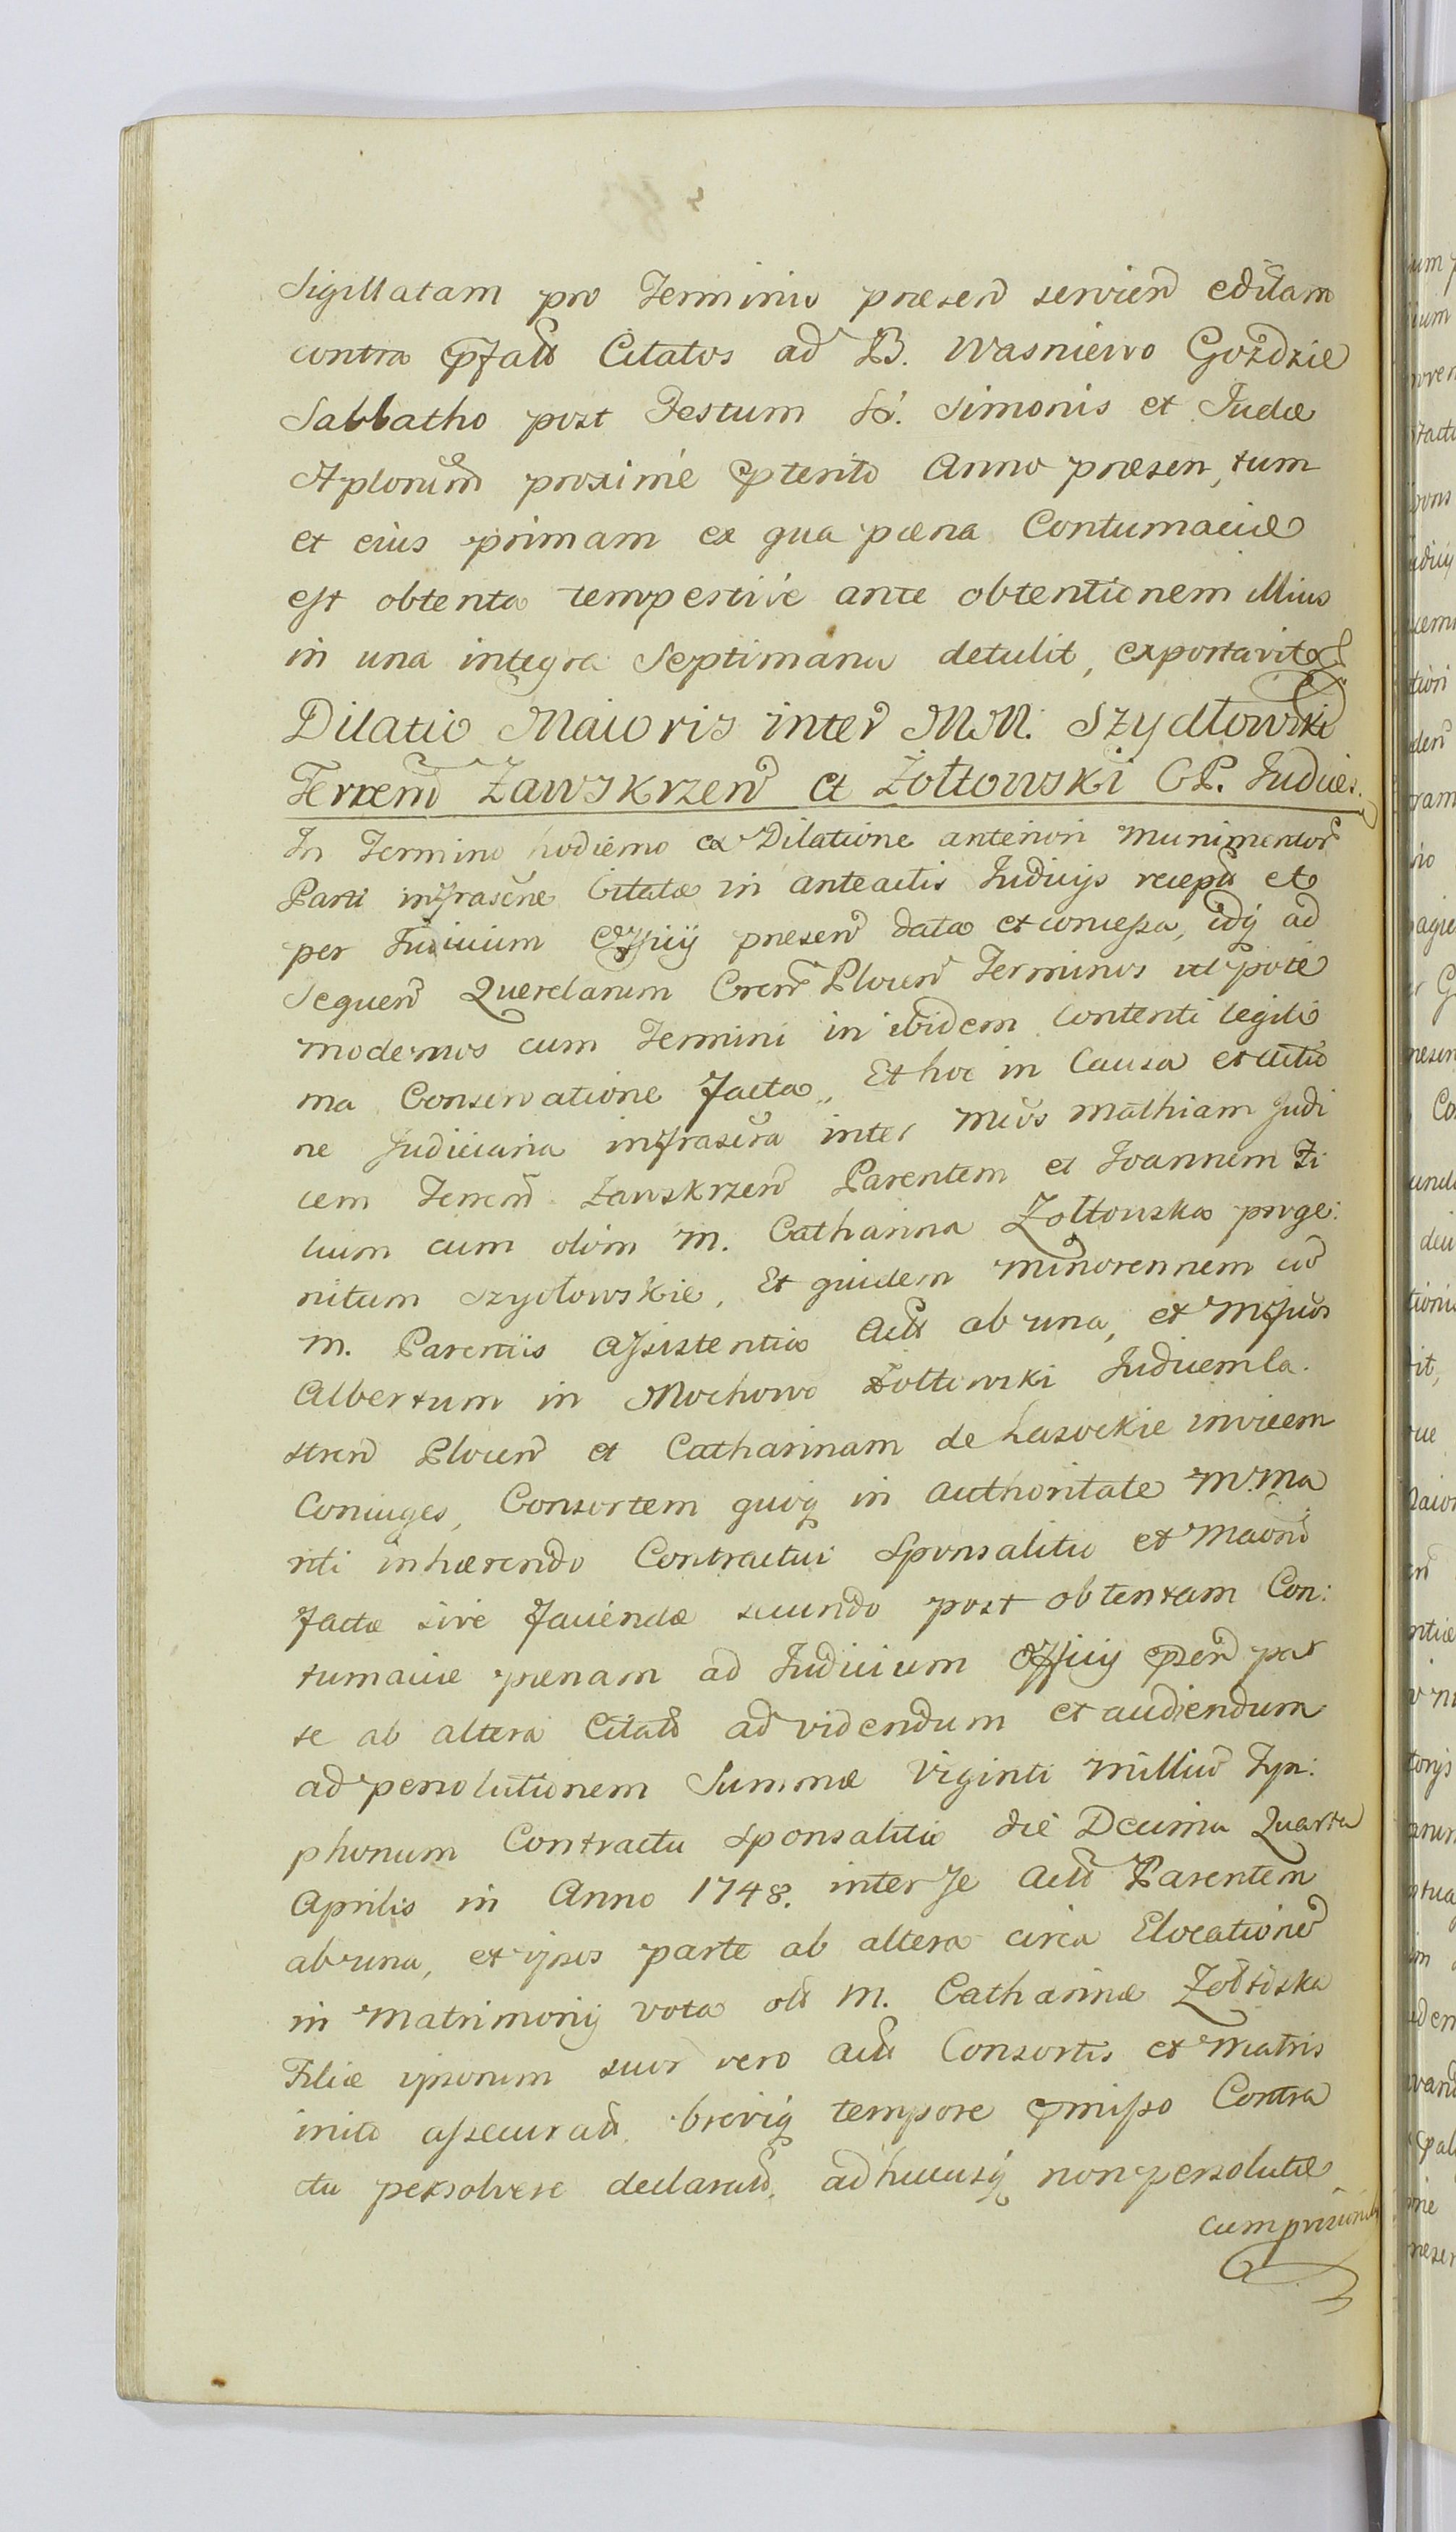 Sigillatam pro Termino præsen servien editam
contra pfatt Citatos ad B. Wasniewo Goździe
Sabbatho post Festum SS. Simonis et Judæ
Aplorum proxime pterito Anno præsen, tum
et eius primam ex qua pæna Contumaciæ
est obtenta tempestive ante obtentionem illius
in una integra Septimana detulit, exportavit
Dilatio Maioris inter MM. Szydłowski
Terren Zawskrzen et Żołtowski CP. Judices.
In Termino hodierno ex Dilatione anteriori munimentor
Parti infrascrie Citatæ in anteactis Judicijs recept et
per Judicium Officij præsen data et concessa, idq ad
Sequen Querelarum Cren Plocen Terminos utpote
modernos cum Termini in ibidem contenti legiti
ma Conservatione facta,, Et hoc in Causa et citio
ne Judiciaria infrascra inter Mcos Mathiam Judi
cem Terren Zawskrzen Parentem et Joannem Fi
lium cum olim M. Catharina Zołtowska proge:
nitum Szydłowskie, Et quidem minorennem in
M. Parentis assistentia Actt ab una, et Mfcos
Albertum in Mochowo Żołtowski Judicem Ca.
stren Plocen et Catharinam de Lasockie invicem
Coniuges, Consortem quoq in authoritate M. Ma
riti inhærendo Contractui Sponsalitio et Maond
factæ sive faciendæ secundo post obtentam Con:
tumaciæ pænam ad Judicium Officij psen par
te ab altera Citatt ad videndum et audiendum
ad persolutionem Summæ Viginti milliu Tyn:
phonum Contractu Sponsalitio die Decima Quarta
Aprilis in Anno 1748. inter se Actt Parentem
ab una, et ipsos parte ab altera circa Elocatione
in Matrimonij vota olt M. Catharinæ Żołtoska
Filiæ ipsorum suor vero actt Consortis et Matris
inito assecuratt. breviq tempore pmisso Contra
ctu persolvere declaratt. adhucusq non persolutæ
cum provisionib